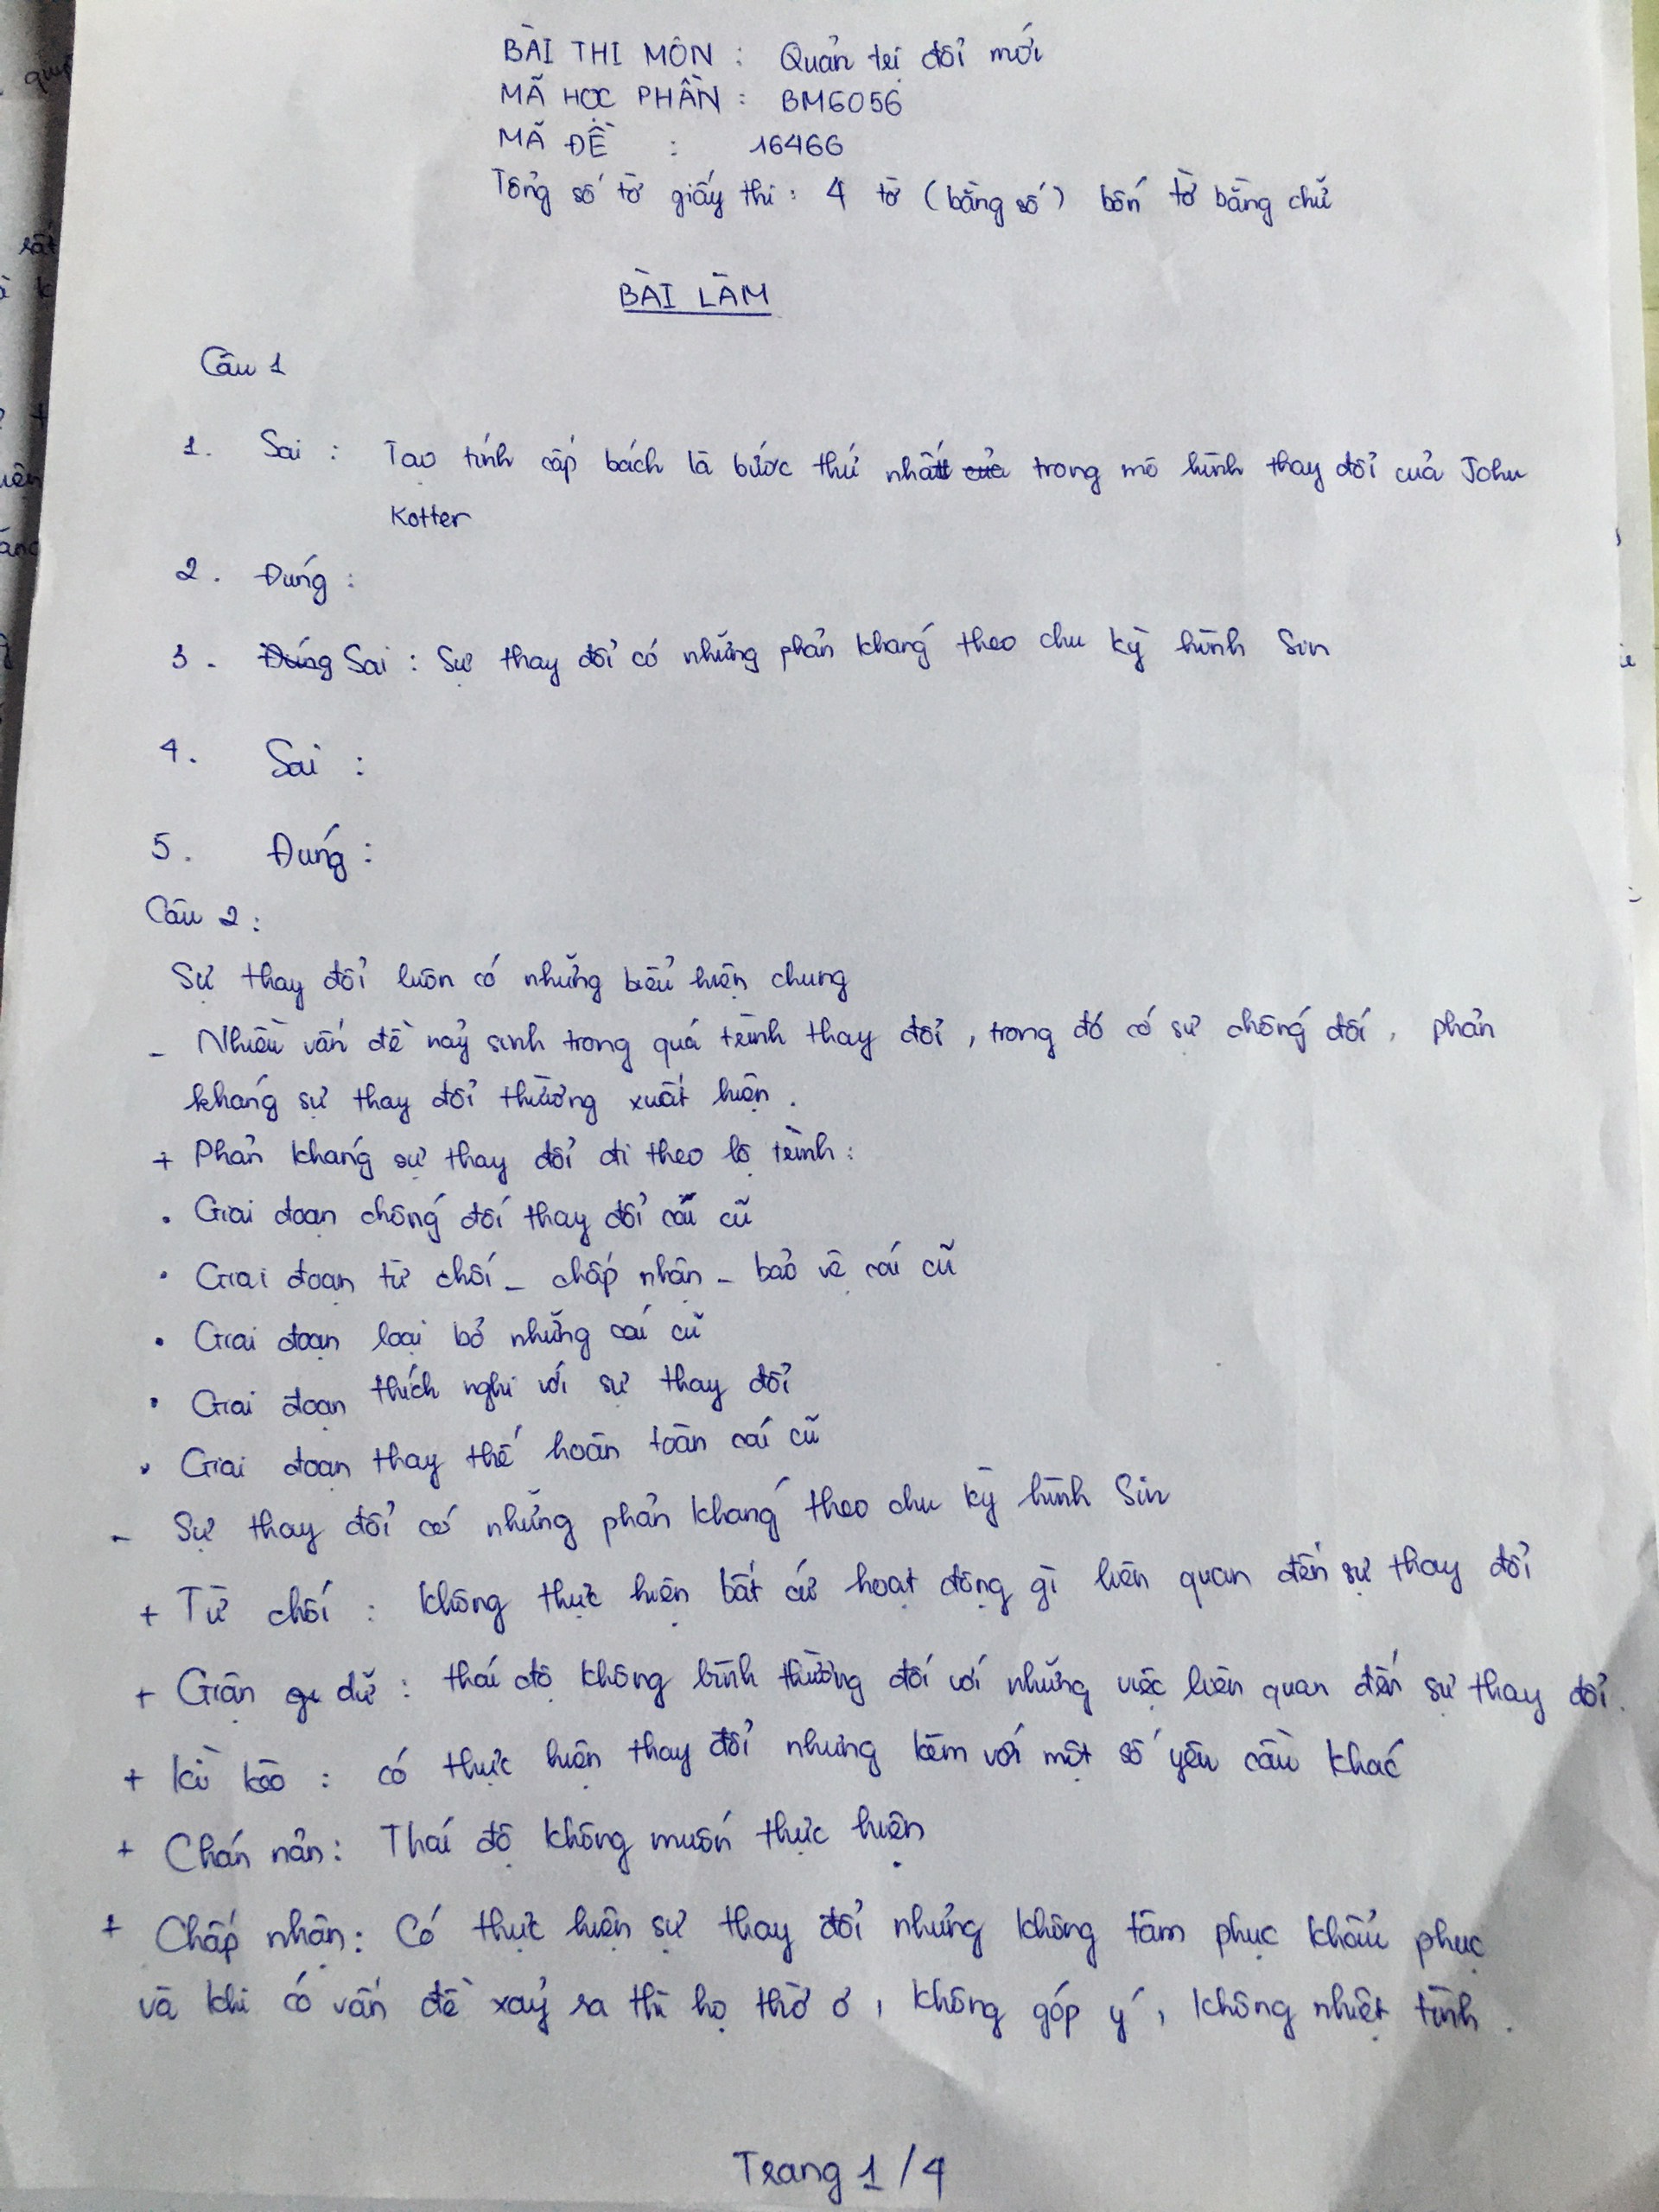 BÀI THI MÔN : Quản trị đổi mới
MÃ HỌC PHẦN : BM6056
MÃ ĐỀ : 16466
Tổng số tờ giấy thi : 4 tờ (bằng số) bốn tờ bằng chữ
BÀI LÀM
Câu 1
1. Sai : Tạo tính cấp bách là bước thứ nhất của trong mô hình thay đổi của John
Kotter
2. Đúng :
3. Đúng Sai : Sự thay đổi có những phản kháng theo chu kỳ hình Sin
4. Sai :
5. Đúng :
Câu 2 :
Sự thay đổi luôn có những biểu hiện chung
- Nhiều vấn đề nảy sinh trong quá trình thay đổi, trong đó có sự chống đối, phản
kháng sự thay đổi thường xuất hiện.
+ Phản kháng sự thay đổi đi theo lộ trình :
• Giai đoạn chống đối thay đổi cái cũ
• Giai đoạn từ chối - chấp nhận - bảo vệ cái cũ
• Giai đoạn loại bỏ những cái cũ
• Giai đoạn thích nghi với sự thay đổi
• Giai đoạn thay thế hoàn toàn cái cũ
- Sự thay đổi có những phản kháng theo chu kỳ hình Sin
+ Từ chối : Không thực hiện bất cứ hoạt động gì liên quan đến sự thay đổi
+ Giận dữ : thái độ không bình thường đối với những việc liên quan đến sự thay đổi.
+ Kì kèo : có thực hiện thay đổi nhưng kèm với một số yêu cầu khác
+ Chán nản : Thái độ không muốn thực hiện
+ Chấp nhận : Có thực hiện sự thay đổi nhưng không tâm phục khẩu phục
và khi có vấn đề xảy ra thì họ thờ ơ, không góp ý, không nhiệt tình.
Trang 1/4